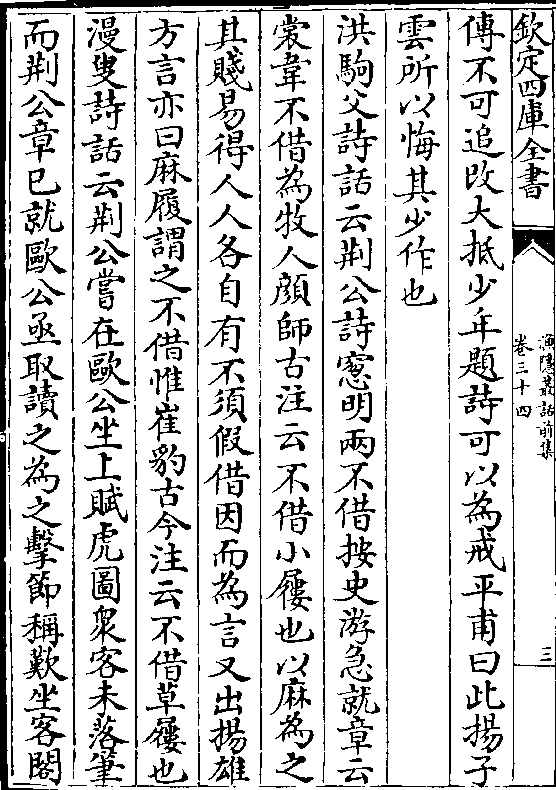 欽定四庫全書
漁隱叢話前集
卷三十四
三
傳不可追改大抵少年題詩可以為戒平甫曰此揚子
雲所以悔其少作也
洪駒父詩話云荆公詩窻明兩不借按史游急就章云
裳韋不借為牧人顔師古注云不借小屨也以麻為之
其賤易得人人各自有不須假借因而為言又出揚雄
方言亦曰麻履謂之不借惟崔豹古今注云不借草屨也
漫叟詩話云荆公嘗在歐公坐上賦虎圖衆客未落筆
而荆公章已就歐公亟取讀之為之擊節稱歎坐客閣